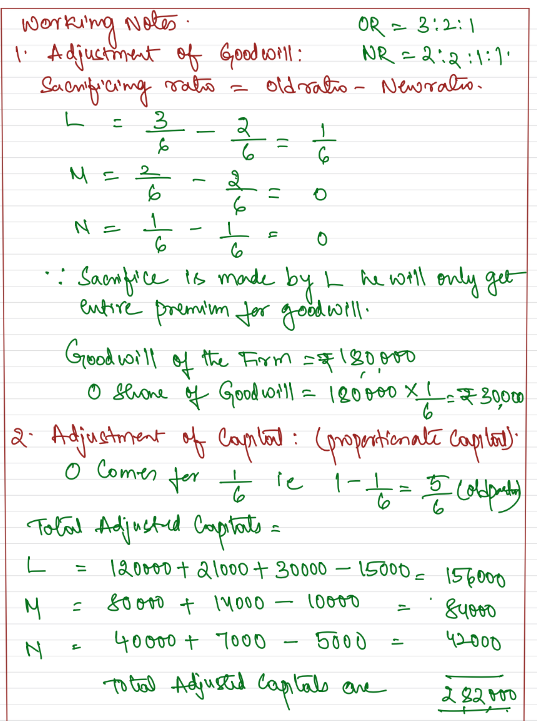 Working Notes. OR = 3:2:1
1. Adjustment of Goodwill: NR = 2:2:1:1.
Sacrificing ratio = old ratio - New ratio.
L = 3/6 - 2/6 = 1/6
M = 2/6 - 2/6 = 0
N = 1/6 - 1/6 = 0
∵ Sacrifice is made by L he will only get
entire premium for goodwill.
Goodwill of the Firm = ₹180,000
O share of Goodwill = 180000 × 1/6 = ₹30,000
2. Adjustment of Capital: (proportionate Capital).
O Comes for 1/6 ie 1 - 1/6 = 5/6 (old partner)
Total Adjusted Capitals =
L = 120000 + 21000 + 30000 - 15000 = 156000
M = 80000 + 14000 - 10000 = 84000
N = 40000 + 7000 - 5000 = 42000
Total Adjusted Capitals are 282,000